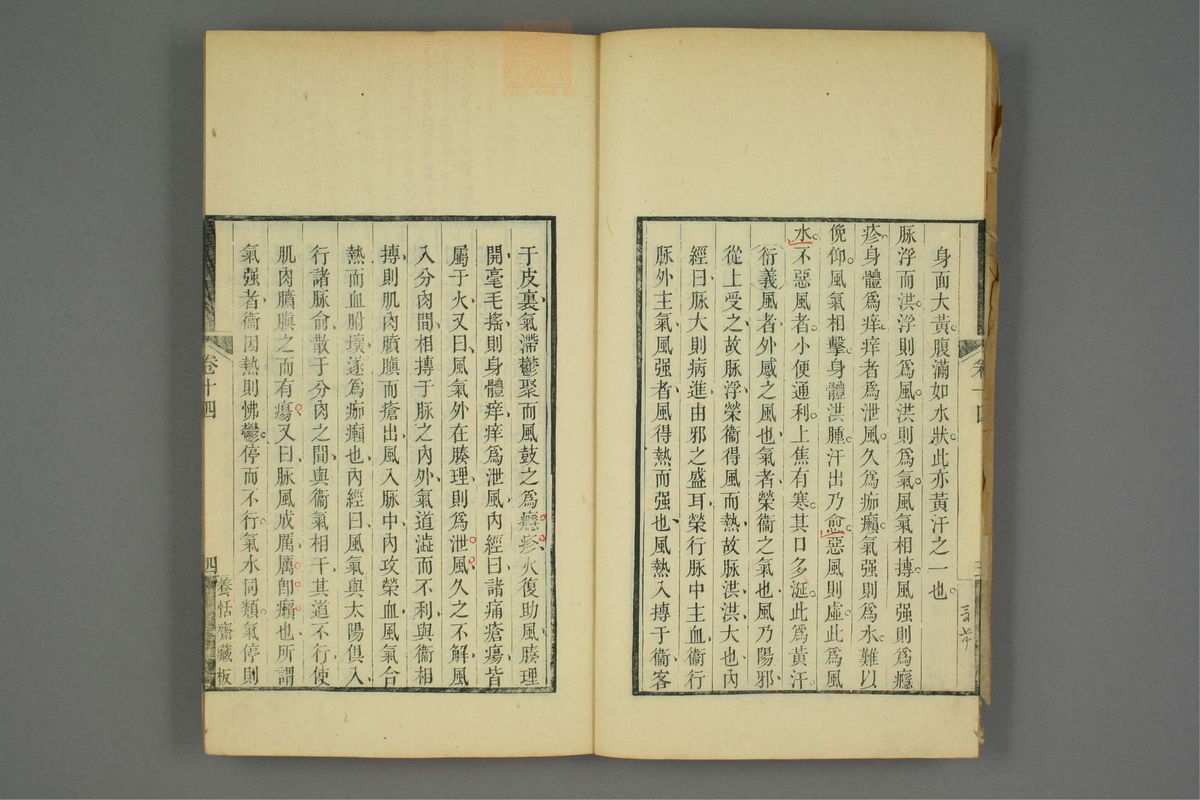 身面大黃腹滿如水狀此亦黃汗之一也
脉浮而洪浮則爲風洪則爲氣風氣相摶風强則爲癮
疹身體爲痒痒者爲泄風久爲痂癩氣强則爲水難以
俛仰風氣相擊身體洪腫汗出乃愈惡風則虛此爲風
水不惡風者小便通利上焦有寒其口多涎此爲黃汗
衍義風者外感之風也氣者榮衞之氣也風乃陽邪
從上受之故脉浮榮衞得風而熱故脉洪洪大也內
經曰脉大則病進由邪之盛耳榮行脉中主血衞行
脉外主氣風强者風得熱而强也風熱入摶于衞客
三七
于皮裏氣滯鬱聚而風鼓之爲癮疹火復助風腠理
開毫毛搖則身體痒痒爲泄風內經曰諸痛瘡瘍皆
屬于火又曰風氣外在腠理則爲泄風久之不解風
入分肉間相摶于脉之內外氣道澁而不利與衞相
摶則肌肉膹䐜而瘡出風入脉中內攻榮血風氣合
熱而血胕壞遂爲痂癩也內經曰風氣與太陽俱入
行諸脉俞散于分肉之間與衞氣相干其道不行使
肌肉膹䐜之而有瘍又曰脉風成厲厲卽癩也所謂
氣强者衞因熱則怫鬱停而不行氣水同類氣停則
卷十四
四
養恬齋藏板